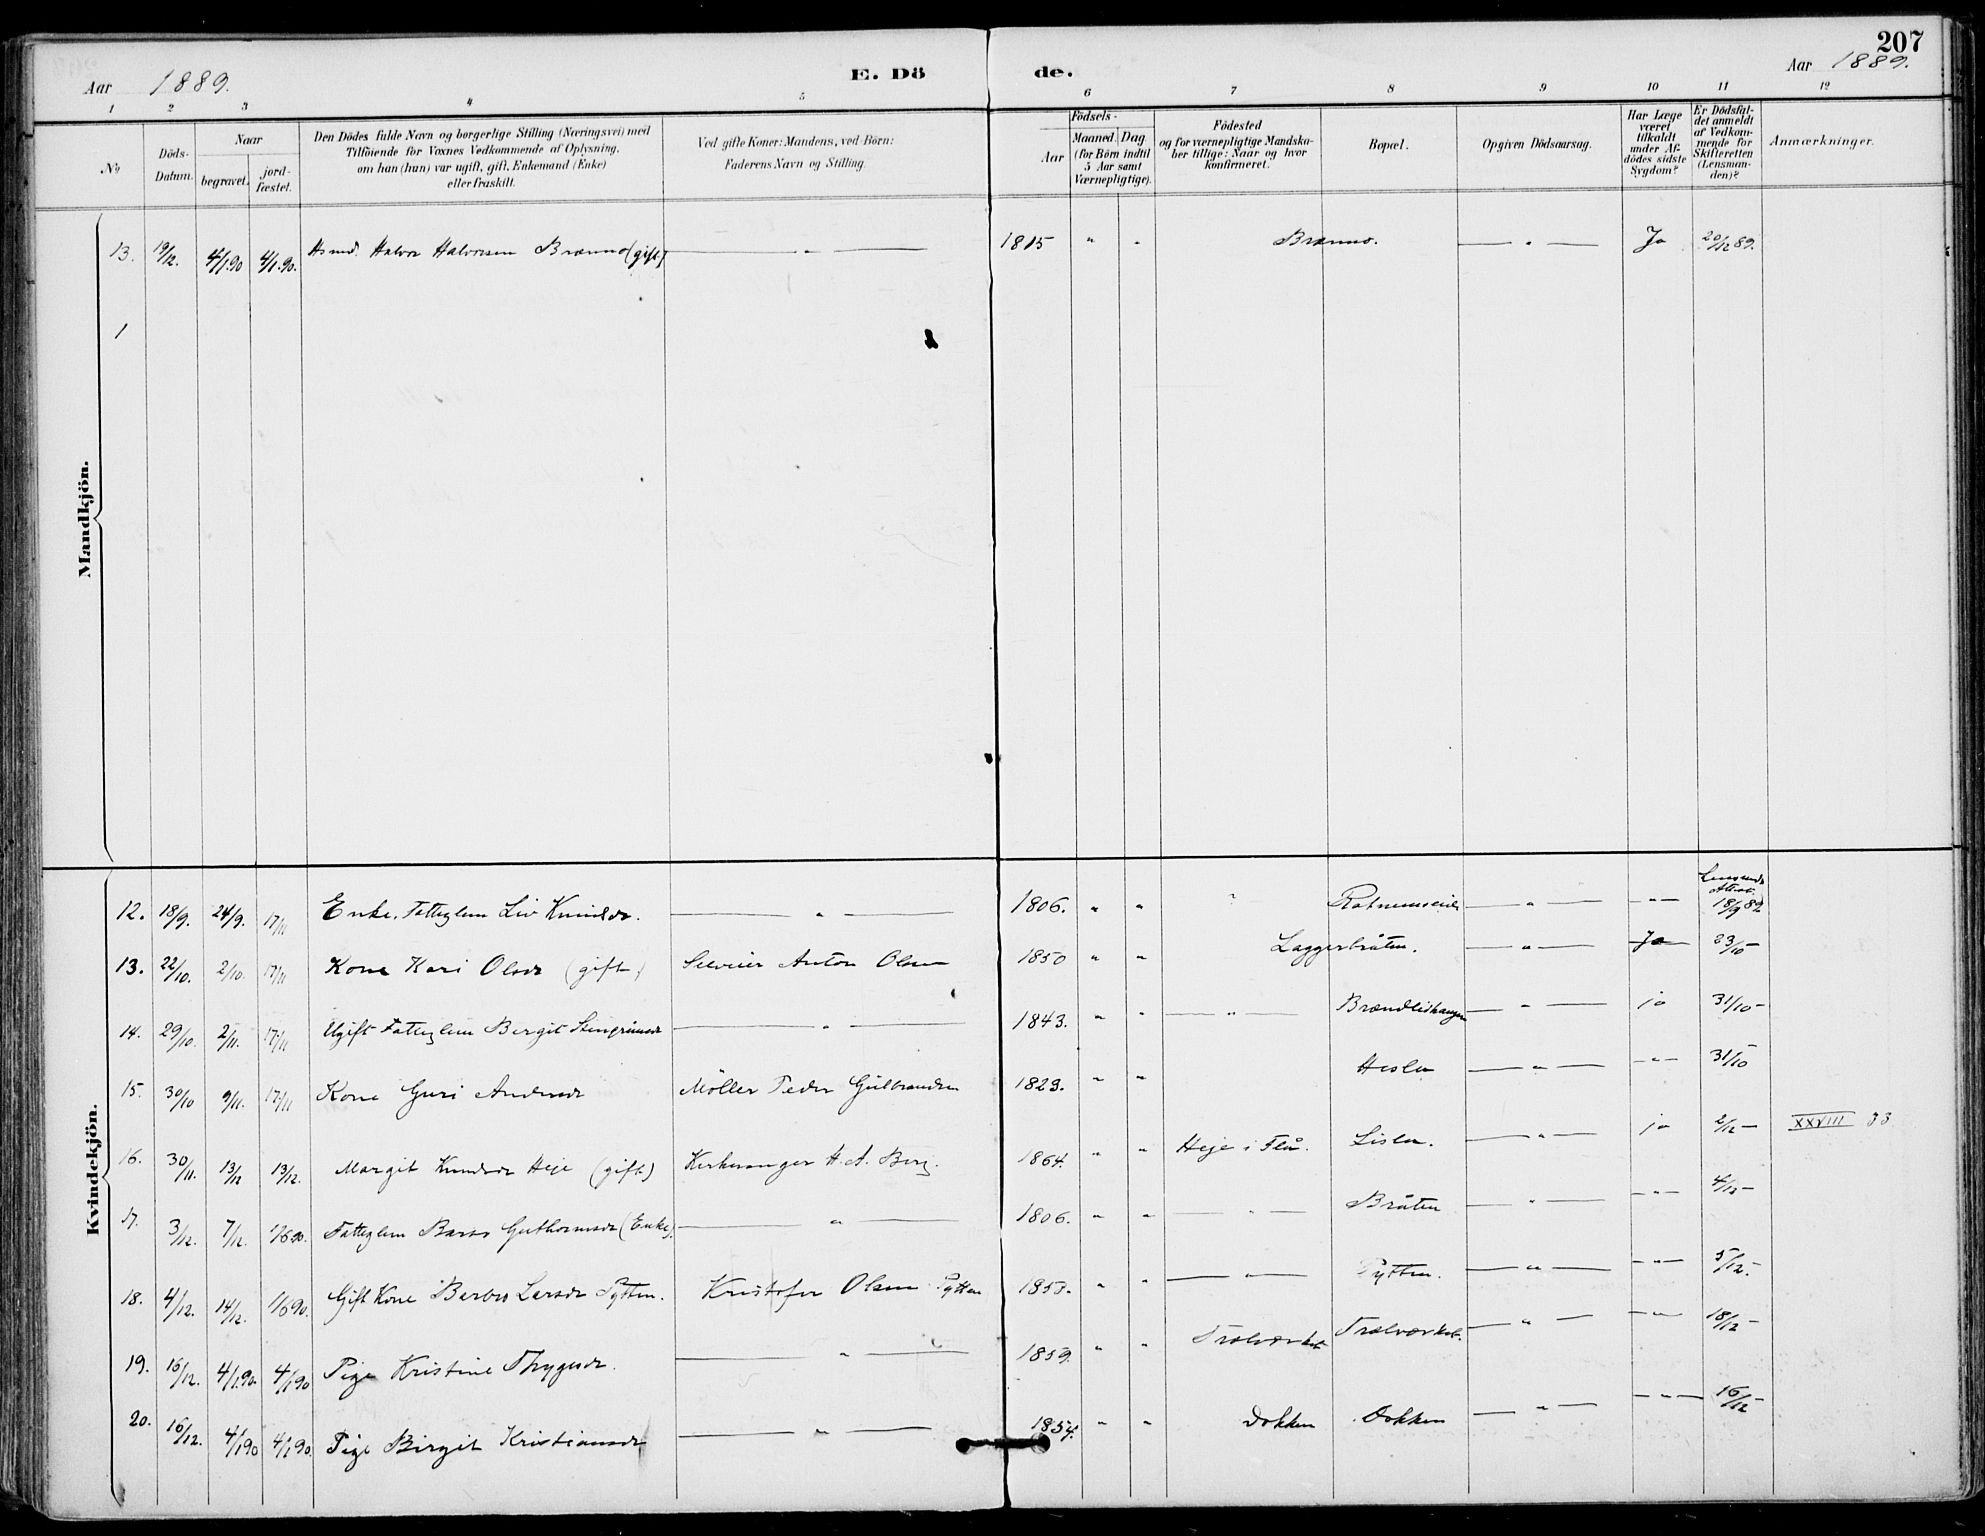 207
Aar 1889.
E. Dö
de.
Aar 1889.
1 2 3 4 5 6 7 8 9 10 11 12
No
Döds-Datum.
Naar
begravet.
jord-fæstet.
Den Dödes fulde Navn og borgerlige Stilling (Næringsvei) med
Tilföiende for Voxnes Vedkommende af Oplysning,
om han (hun) var ugift, gift, Enkemand (Enke)
eller fraskilt.
Ved gifte Koner: Mandens, ved Börn:
Faderens Navn og Stilling.
Födsels-
Aar
Maaned. Dag
(for Börn indtil
5 Aar samt
Værnepligtige).
Födested
og for værnepligtige Mandska-
ber tillige: Naar og hvor
konfirmeret.
Bopæl.
Opgiven Dödsaarsag.
Har Læge
været
tilkaldt
under Af-
dödes sidste
Sygdom?
Er Dödsfal-
det anmeldt
af Vedkom-
mende for
Skifteretten
(Lensman-
den)?
Anmærkninger.
Mandkjön.
13. 19/12. 4/1.90 4/1.90. Halvor Halvorsen (gift) — " — 1815 " " — " — Ja 20/12 89.
1
Kvindekjön.
12. 18/9. 24/9. 17/11 Enke, Fattiglem Liv Knudsdr. — " — 1806. " " " — " — — " — 18/9 89
13. 22/10. 2/10. 17/11 Kone Kari Olsdr (gift) Anton Olsen 1850 " " — " — Ja 23/10 —
14. 29/10. 2/11. 17/11 Ugift Fattiglem Bergit Steingrimsdr — " — 1843. " " — " — — " — ja 31/10 —
15. 30/10 9/11. 17/11 Kone Guri Andersdr Möller Peder Gulbrandsen 1829. " " — " — — " — 31/10 —
16. 30/11. 13/12 13/12. Margit Knudsdr Heje (gift) Kirkesanger A. A. Berg. 1864. " " Heje i Flå. — " — ja 2/12 — XXVIII 33
17. 3/12. 7/12. Fattiglem Barbro Guthormsdr (Enke). — " — 1806. " " — " — Bråten — " — — " — 4/12 —
18. 4/12. 14/12. 1/6 90. Gift Kone Barbro Larsdr Pytten. Kristofer Olsen Pytten 1853. " " — " — Pytten. — " — — " — 5/12 —
19. 16/12. 4/1.90. 4/1 90 Pige Kristine Thygesdr. — " — 1859. " " — " — — " — 18/12 —
20. 16/12. 4/1 90 4/1 90. Pige Birgit Kristiansdr — " — 1854. " " Dokken Dokken — " — — " — 16/12 —